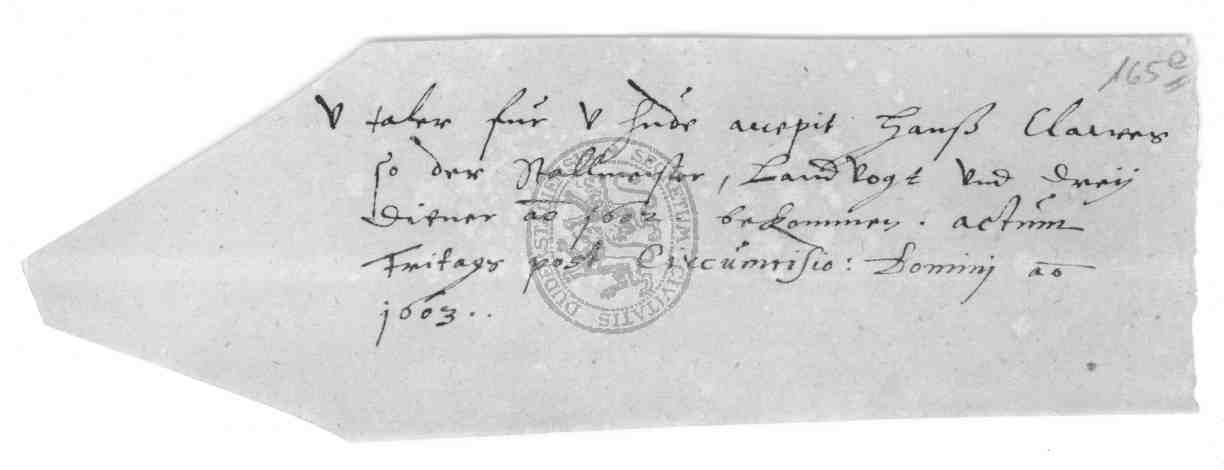 165e
V taler für V hüde accepit Hanß Clawes
so der Stallmeister, Landvogt vnd dreij
diener ao 1602 bekommen. actum
Fritags post Circumcisio: Domini ao
1603..
SECRETUM CIVITATIS DUD